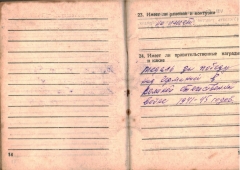 23. Имеет ли ранения и контузии
не имеет
24. Имеет ли правительственные награды
и какие
медаль за победу
над Германией в
Великой Отечественной
войне 1941-45 годов.
14
15